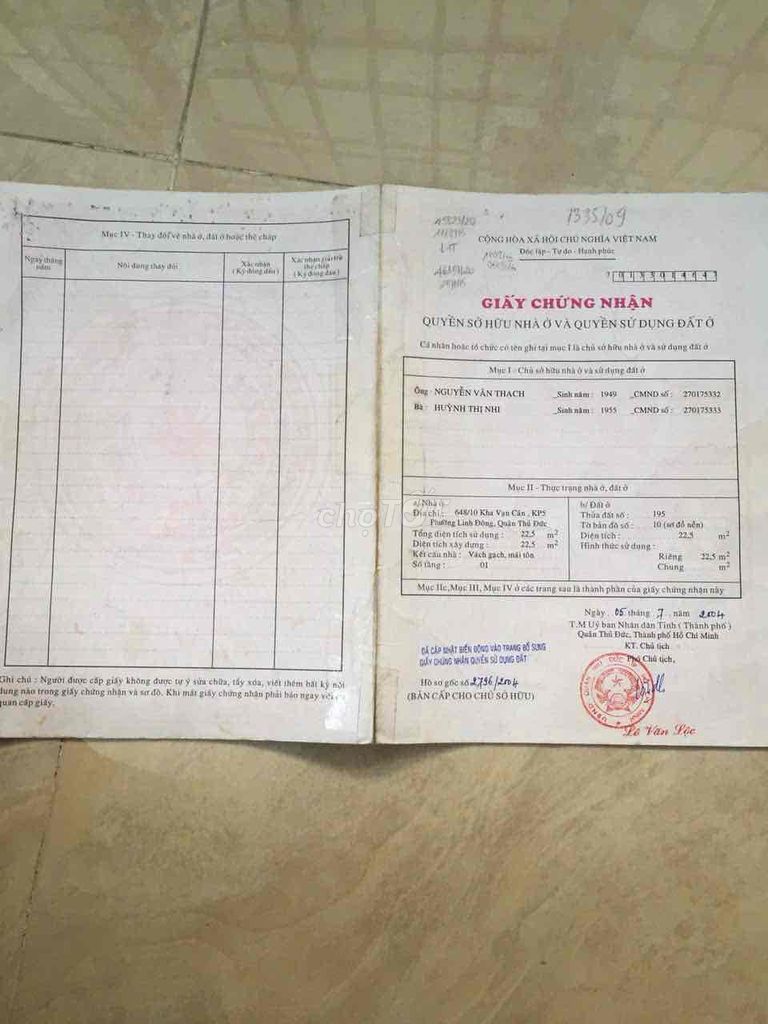 Mục IV - Thay đổi về nhà ở, đất ở hoặc thế chấp
Ngày tháng năm
Nội dung thay đổi
Xác nhận
(Ký đóng dấu)
Xác nhận giải trừ thế chấp
(Ký đóng dấu)
Ghi chú : Người được cấp giấy không được tự ý sửa chữa, tẩy xóa, viết thêm bất kỳ nội
dung nào trong giấy chứng nhận và sơ đồ. Khi mất giấy chứng nhận phải báo ngay với cơ
quan cấp giấy.
1335/09
CỘNG HÒA XÃ HỘI CHỦ NGHĨA VIỆT NAM
Độc lập - Tự do - Hạnh phúc
GIẤY CHỨNG NHẬN
QUYỀN SỞ HỮU NHÀ Ở VÀ QUYỀN SỬ DỤNG ĐẤT Ở
Cá nhân hoặc tổ chức có tên ghi tại mục I là chủ sở hữu nhà ở và sử dụng đất ở
Mục I - Chủ sở hữu nhà ở và sử dụng đất ở
Ông : NGUYỄN VĂN THẠCH _Sinh năm : 1949 _CMND số : 270175332
Bà : HUỲNH THỊ NHI _Sinh năm : 1955 _CMND số : 270175333
Mục II - Thực trạng nhà ở, đất ở
a/ Nhà ở
Địa chỉ : 648/10 Kha Vạn Cân , KP5
Phường Linh Đông, Quận Thủ Đức
Tổng diện tích sử dụng : 22,5 m²
Diện tích xây dựng : 22,5 m²
Kết cấu nhà : Vách gạch, mái tôn
Số tầng : 01
b/ Đất ở
Thửa đất số : 195
Tờ bản đồ số : 10 (sơ đồ nền)
Diện tích : 22,5 m²
Hình thức sử dụng :
Riêng 22,5 m²
Chung m²
Mục IIc, Mục III, Mục IV ở các trang sau là thành phần của giấy chứng nhận này
Ngày 05 tháng 7 năm 2004
T.M Uỷ ban Nhân dân Tỉnh ( Thành phố )
Quận Thủ Đức, Thành phố Hồ Chí Minh
KT. Chủ tịch
Phó Chủ tịch,
ĐÃ CẬP NHẬT BIẾN ĐỘNG VÀO TRANG BỔ SUNG
GIẤY CHỨNG NHẬN QUYỀN SỬ DỤNG ĐẤT
Hồ sơ gốc số 2796/2004
(BẢN CẤP CHO CHỦ SỞ HỮU)
Lê Văn Lộc
chợTỐT